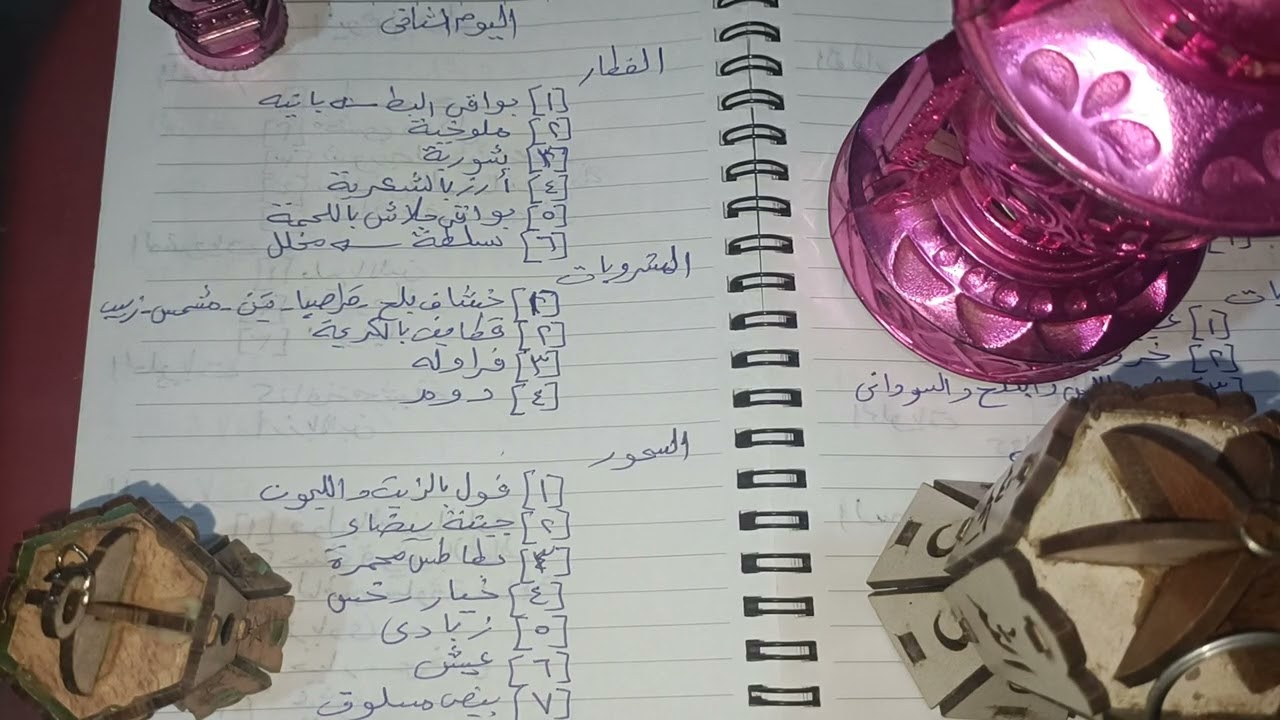 اليوم الثاني
الفطار
[١] بواقي البط ــ باتيه
[٢] ملوخية
[٣] شوربة
[٤] أرز بالشعرية
[٥] بواقي جلاش باللحمة
[٦] سلطة ــ مخلل
المشروبات
[١] خشاف بلح - قراصيا - تين - مشمس - زبيب
[٢] قطايف بالكريمة
[٣] فراوله
[٤] دوم
السحور
[١] فول بالزيت و الليمون
[٢] جبنة بيضاء
[٣] بطاطس محمرة
[٤] خيار و خس
[٥] زبادى
[٦] عيش
[٧] بيض مسلوق
[١]
[٢]
والسودانى